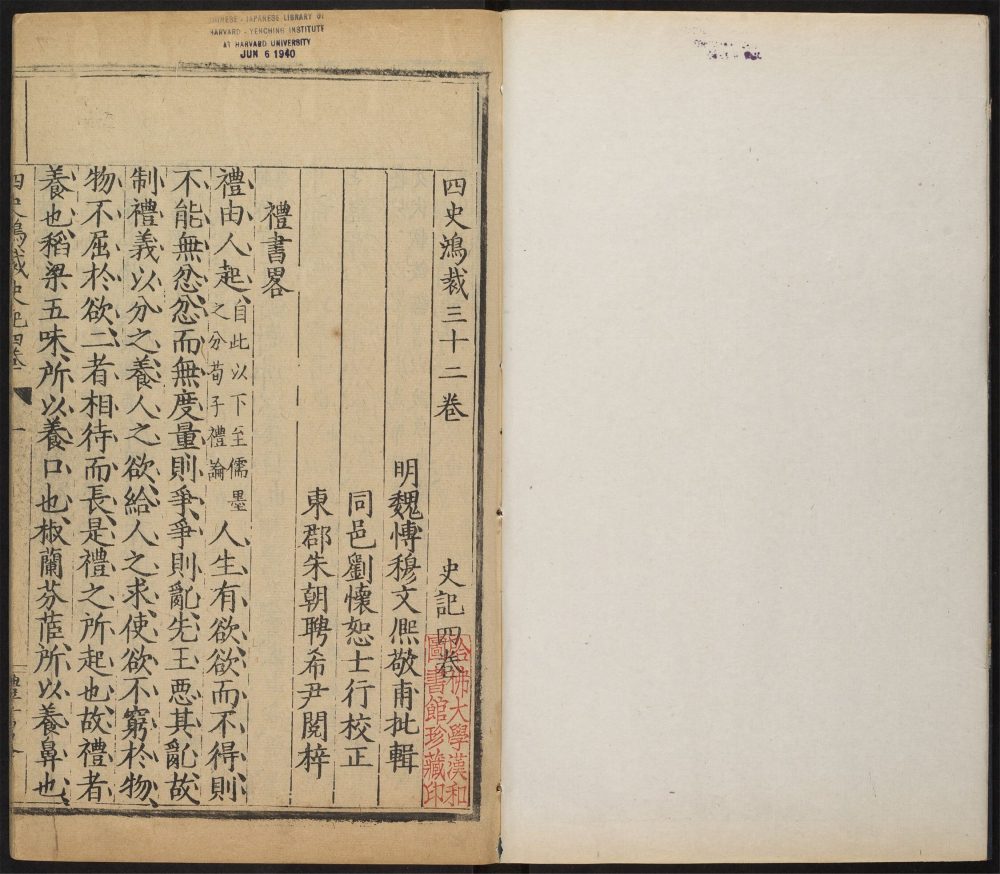 CHINESE - JAPANESE LIBRARY OF
HARVARD - YENCHING INSTITUTE
AT HARVARD UNIVERSITY
JUN 6 1940
四史鴻裁三十二卷 史記四卷
明魏博穆文熙敬甫批輯
同邑劉懷恕士行校正
東郡朱朝聘希尹閱梓
禮書畧
禮由人起自此以下至儒墨之分荀子禮論人生有欲欲而不得則
不能無忿忿而無度量則爭爭則亂先王惡其亂故
制禮義以分之養人之欲給人之求使欲不窮於物
物不屈於欲二者相待而長是禮之所起也故禮者
養也稻梁五味所以養口也椒蘭芬茝所以養鼻也
四史鴻裁史記四卷 一
哈佛大學漢和
圖書館珍藏印